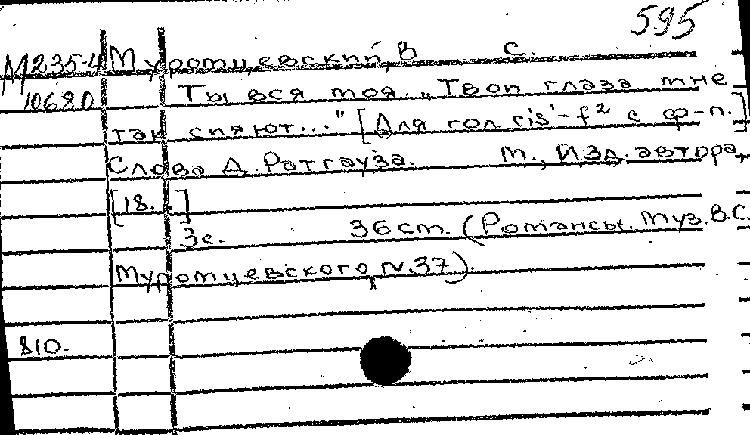 595
М235-4 Муромцевский, В С.
10680 Ты вся моя. „Твои глаза мне
так сияют..." [Для гол. cis'-f² с ф-п.]
Слова Д. Ратгауза. М., Изд. автора,
[18..]
3с. 36 см. (Романсы. Муз. В.С.
Муромцевского, N.37)
810.